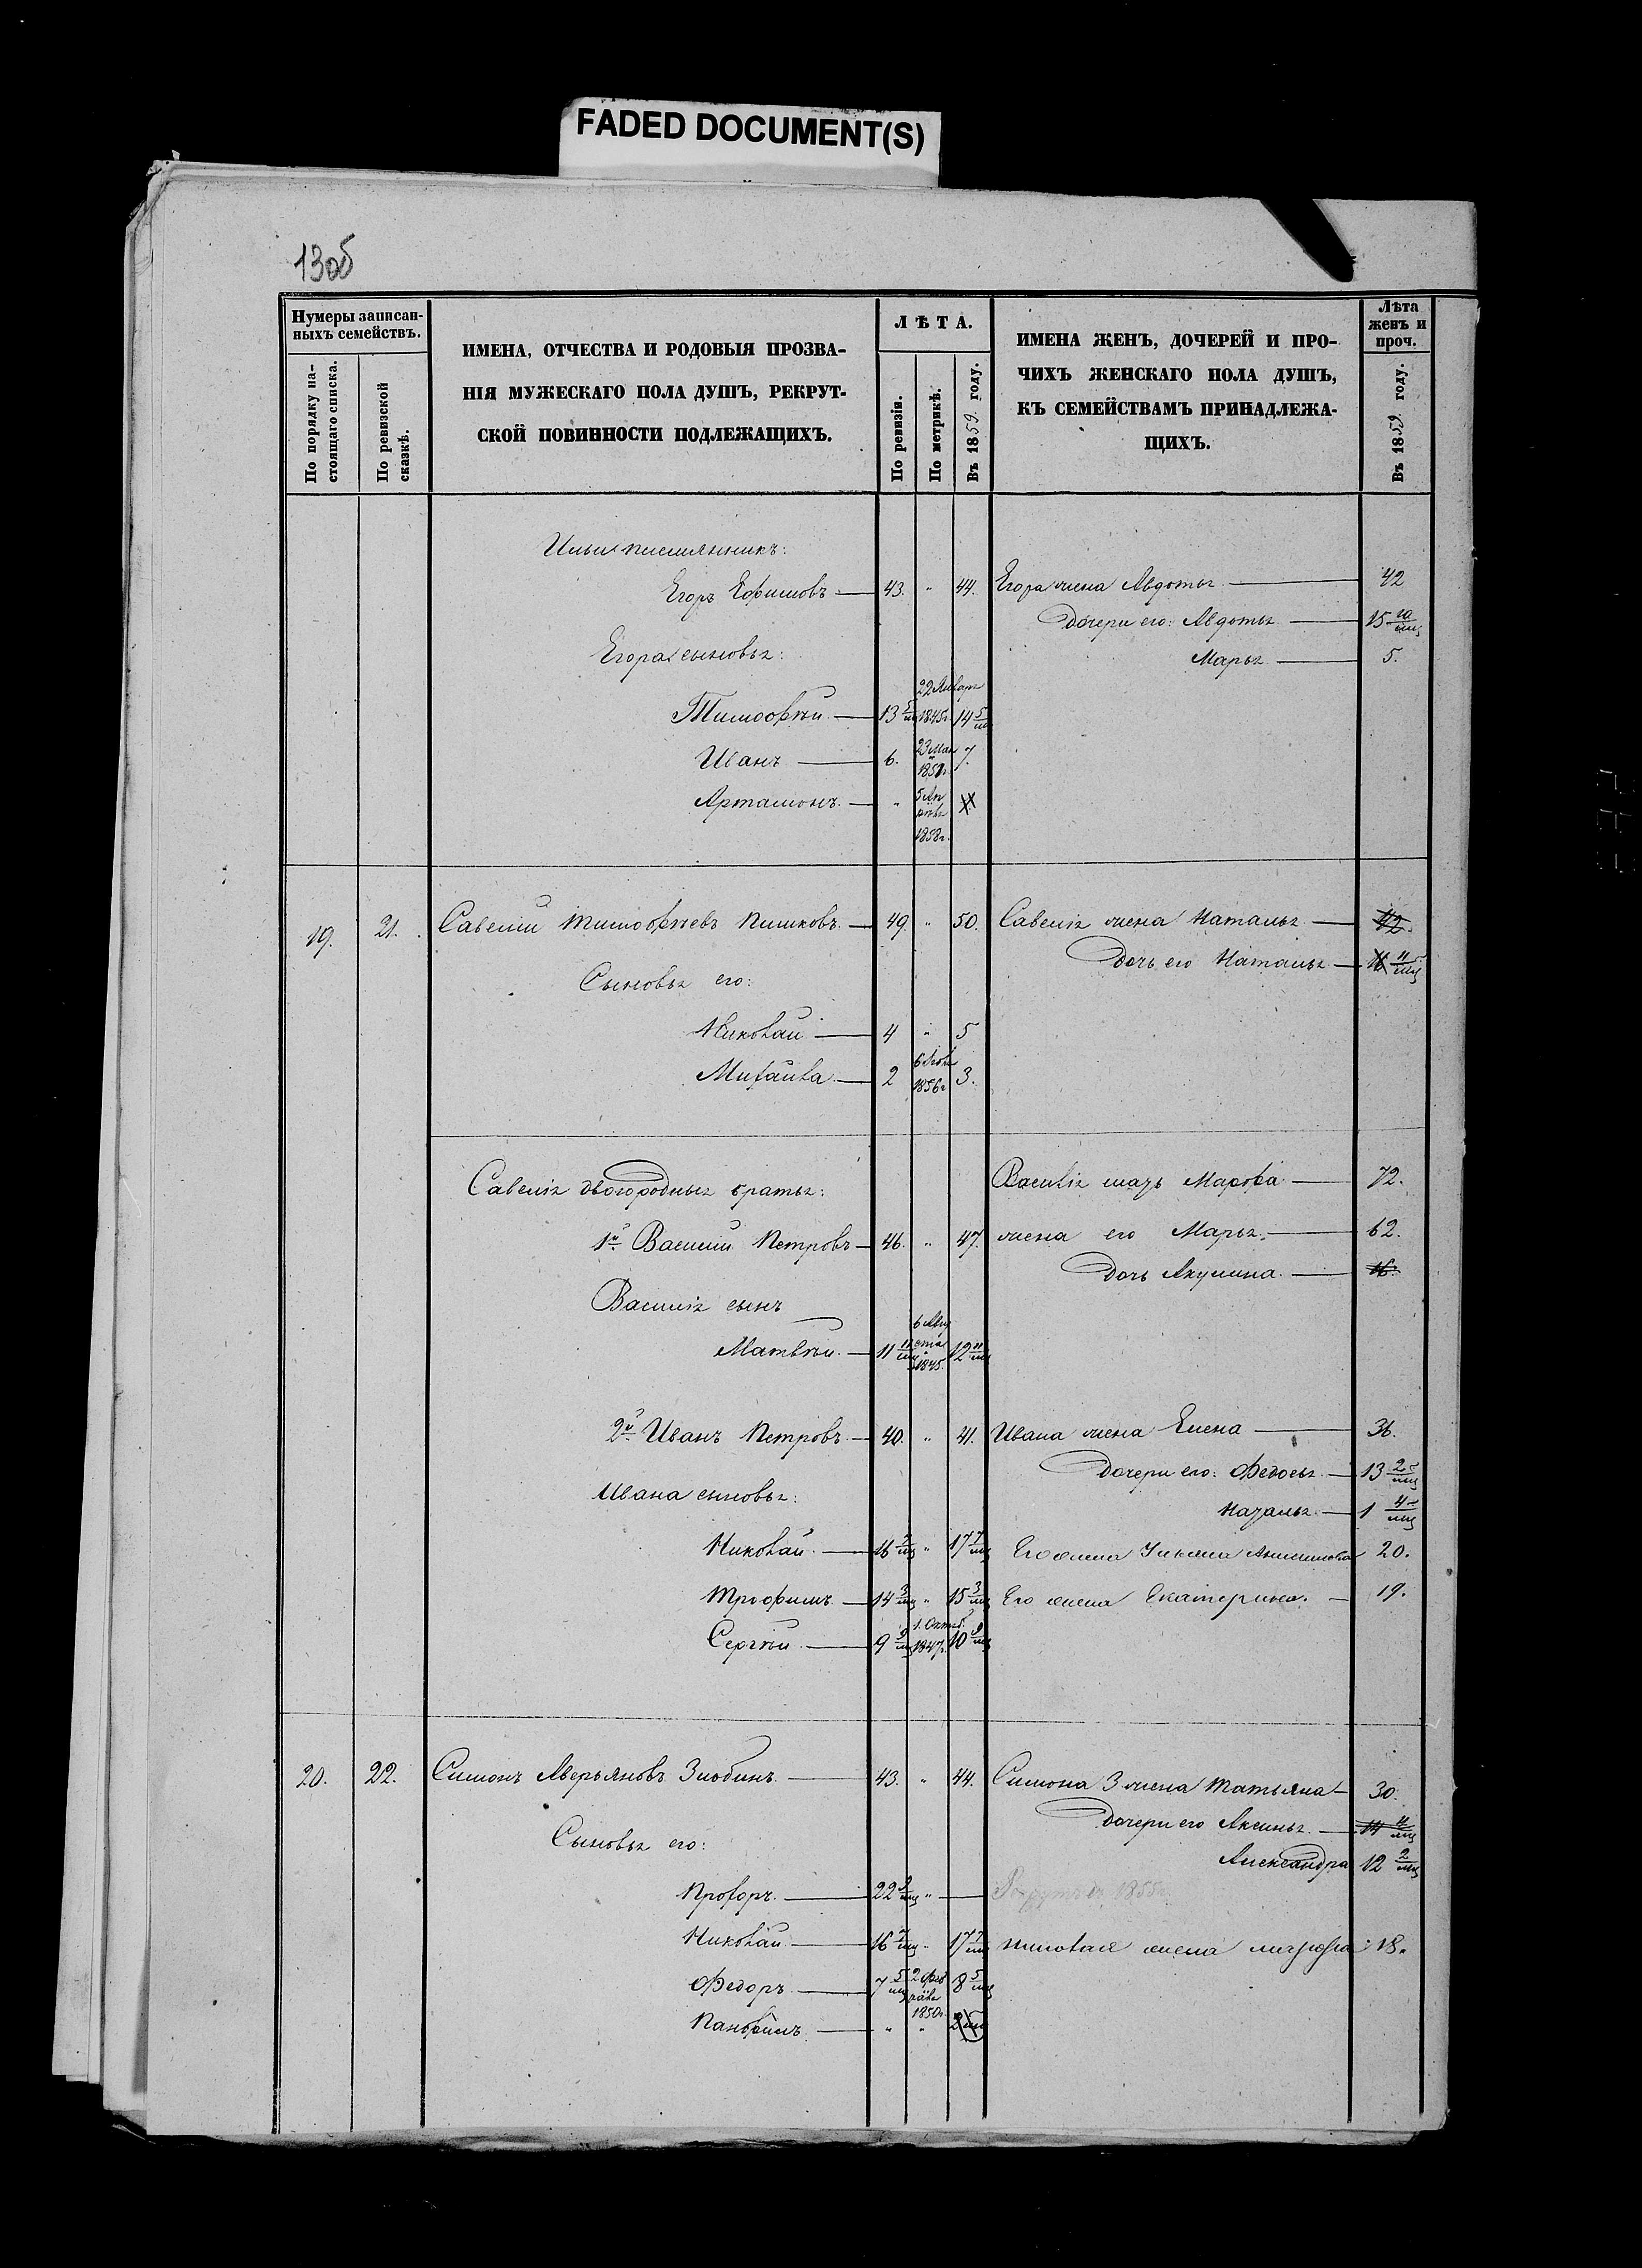 FADED DOCUMENT(S)
13об
Нумеры записан-
ныхъ семействъ.
По порядку на-
стоящаго списка.
По ревизской
сказкѣ.
ИМЕНА, ОТЧЕСТВА И РОДОВЫЯ ПРОЗВА-
НІЯ МУЖЕСКАГО ПОЛА ДУШЪ, РЕКРУТ-
СКОЙ ПОВИННОСТИ ПОДЛЕЖАЩИХЪ.
ЛѢТА.
По ревизіи.
По метрикѣ.
Въ 1859 году.
ИМЕНА ЖЕНЪ, ДОЧЕРЕЙ И ПРО-
ЧИХЪ ЖЕНСКАГО ПОЛА ДУШЪ,
КЪ СЕМЕЙСТВАМЪ ПРИНАДЛЕЖА-
ЩИХЪ.
Лѣта
женъ и
проч.
Въ 1859 году.
Ильи племянникъ:
Егоръ Ефимовъ — 43. " 44. Егора жена Авдотья — 42
дочери его: Авдотья — 15 10/мц
Егора сыновья:
Марья — 5.
Тимофѣй — 13 5/мц 22 Января 1845г. 14 5/мц
Иванъ — 6. 23 Мая 1851г. 7.
Артамонъ — " 5 Ап рѣля 1858г.
19. 21. Савелій Тимофѣевъ Пишковъ — 49. " 50. Савелія жена Наталья — 42.
дочь его Наталья — 16 11/мц
Сыновья его:
Николай — 4 " 5
Михайла — 2 1856г 3.
Савелія двоюродныя братья:
Василія мать Марфа — 72.
1й Василій Петровъ — 46. " 47. жена его Марья — 62.
дочь Акулина — 16.
Василія сынъ
Матвѣй — 11 11/мц 6 Авгу ста 1845. 12 11/мц
2й Иванъ Петровъ — 40. " 41. Ивана жена Елена — 36.
дочери его: Федосья — 13 2/мц
Ивана сыновья:
Наталья — 1 4/мц
Николай — 16 7/мц " 17 7/мц Его жена 20.
Трофимъ — 14 3/мц " 15 3/мц Его жена Екатерина. — 19.
Сергѣй — 9 9/мц 1. Октяб. 1847г. 10 9/мц
20. 22. Симонъ Аверьяновъ Злобинъ — 43. " 44. Симона 3 жена Татьяна — 30.
дочери его Аксинья — 14 11/мц
Сыновья его:
Александра 12 2/мц
Прохоръ — 22 9/мц " — Рекрутъ въ 1855г.
Николай — 16 7/мц " 17 7/мц Николая жена 18.
Федоръ — 7 5/мц 2 Фев раля 1850г. 8 5/мц
Панфилъ — " "